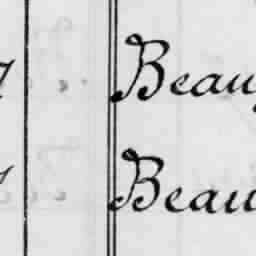 7 Beau
Beau